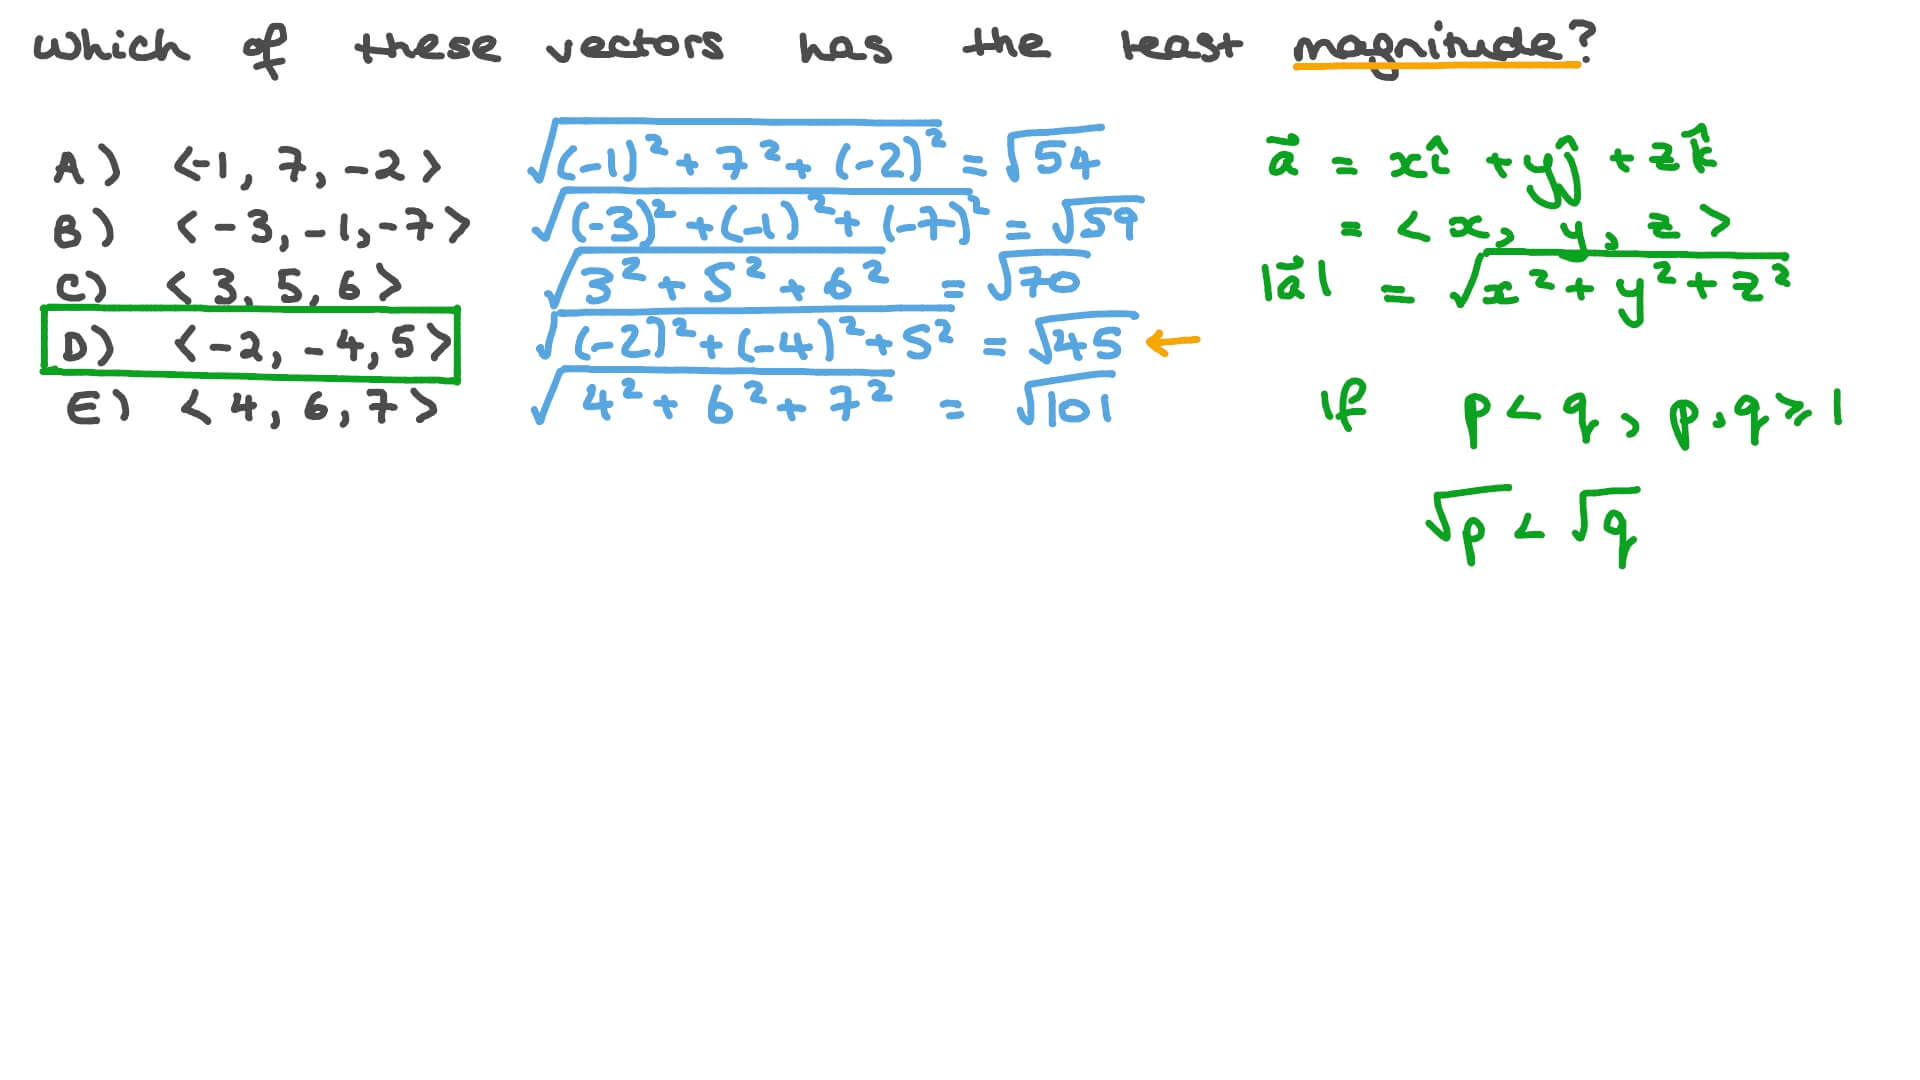 Which of these vectors has the least magnitude?
A) <-1, 7, -2> √((-1)² + 7² + (-2)²) = √54
B) <-3, -1, -7> √((-3)² + (-1)² + (-7)²) = √59
C) <3, 5, 6> √(3² + 5² + 6²) = √70
D) <-2, -4, 5> √((-2)² + (-4)² + 5²) = √45 ←
E) <4, 6, 7> √(4² + 6² + 7²) = √101
a⃗ = xî + yĵ + zk̂
= <x, y, z>
|a⃗| = √(x² + y² + z²)
If p < q, p, q ⩾ 1
√p < √q